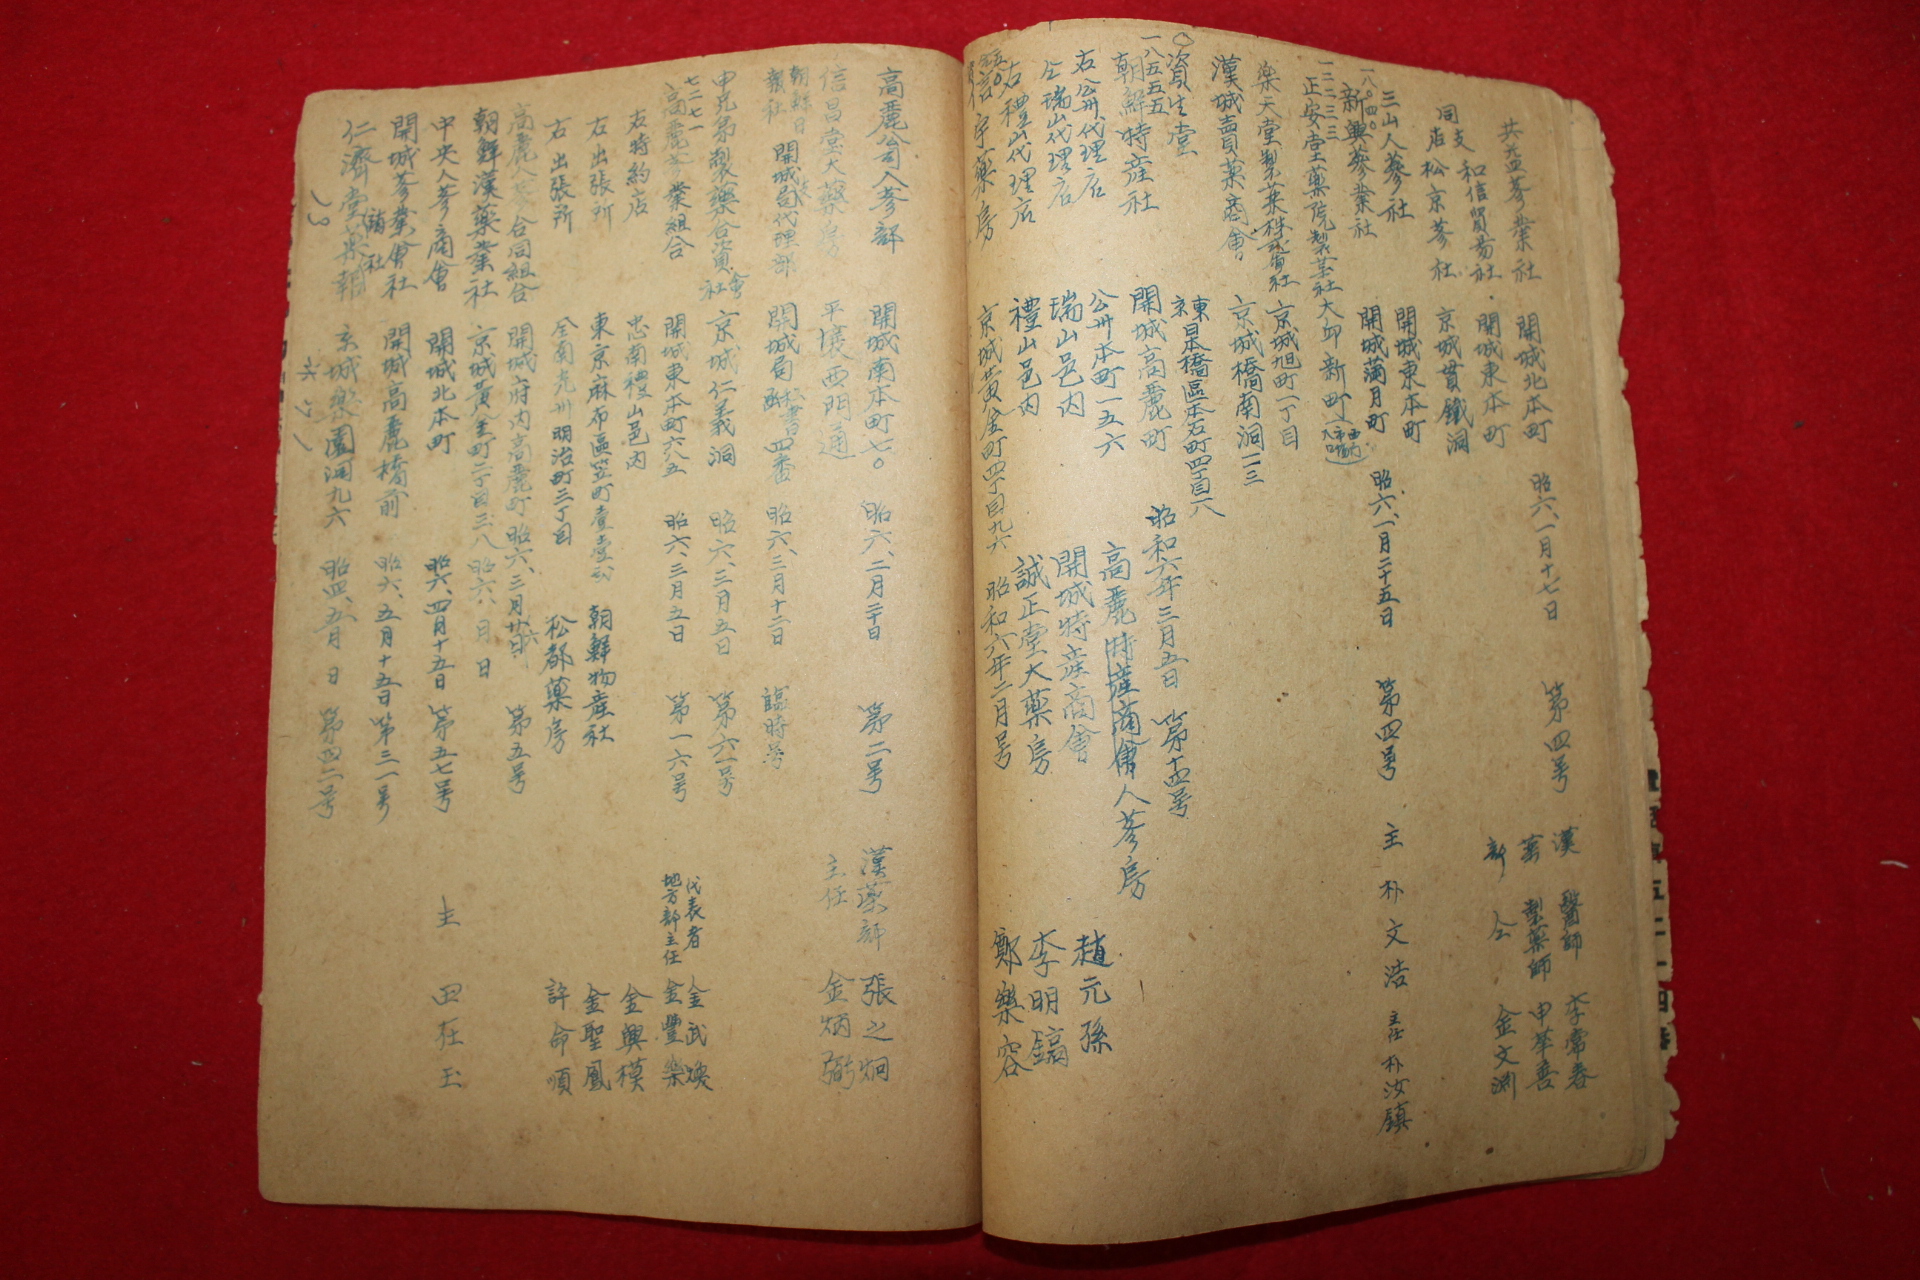 共益蔘業社 開城北本町 昭六、一月十七日 第四号 漢 醫師 李常春
和信貿易社 開城東本町 製薬師 申華善
同支店 松京蔘社 京城貫鐵洞 部 仝 金文淵
三山人蔘社 開城東本町
一八〇四〇
新興蔘業社 開城満月町 昭六、一月二十五日 第四号 主 朴文浩 主任 朴汝鎮
一二二三三
正安堂薬院製薬社 大邱新町
樂天堂製薬株式會社 京城旭町一丁目
漢城賣薬商會 京城橋南洞一二三
〇資生堂 東京日本橋區本石町四丁目八
一八五五五
朝鮮特産社 開城高麗町 昭和六年三月五日 第十四号
右公州代理店 公州本町一五六 高麗特産商會人蔘房 趙元孫
仝瑞山代理店 瑞山邑内 開城特産商會 李明鎬
右禮山代理店 禮山邑内 誠正堂大薬房 鄭樂容
宇薬房 京城黄金町四丁目九六 昭和六年二月号
高麗公司人蔘部 開城南本町七〇 昭六、二月二十日 第二号 漢薬部 張之炯
信昌堂大薬房 平壤西門通 主任 金炳弼
朝鮮日報社 開城局代理部 開城局 四番 昭六、三月十二日 臨時号
申兄弟製藥合資會社 京城仁義洞 昭六、三月五日 第六二号
七二七一
高麗蔘業組合 開城東本町六八五 昭六、三月五日 第一六号 代表者 金武煥
地方部主任 金豐樂
右特約店 忠南禮山邑内 金興模
右出張所 東京麻布區笠町壹壹弐 朝鮮物産社 金聖鳳
右出張所 全南光州明治町三丁目 松都薬房 許命順
高麗人蔘合同組合 開城府内高麗町 昭六、三月 第五号
朝鮮漢薬業社 京城黄金町二丁目三八 昭六、 月 日
中央人蔘商會 開城北本町 昭六、四月十五日 第五七号 主 田在玉
開城蔘業會社 開城高麗橋前 昭六、五月十五日 第三一号
仁濟堂薬報 京城樂園洞九六 昭四、五月 日 第四二号